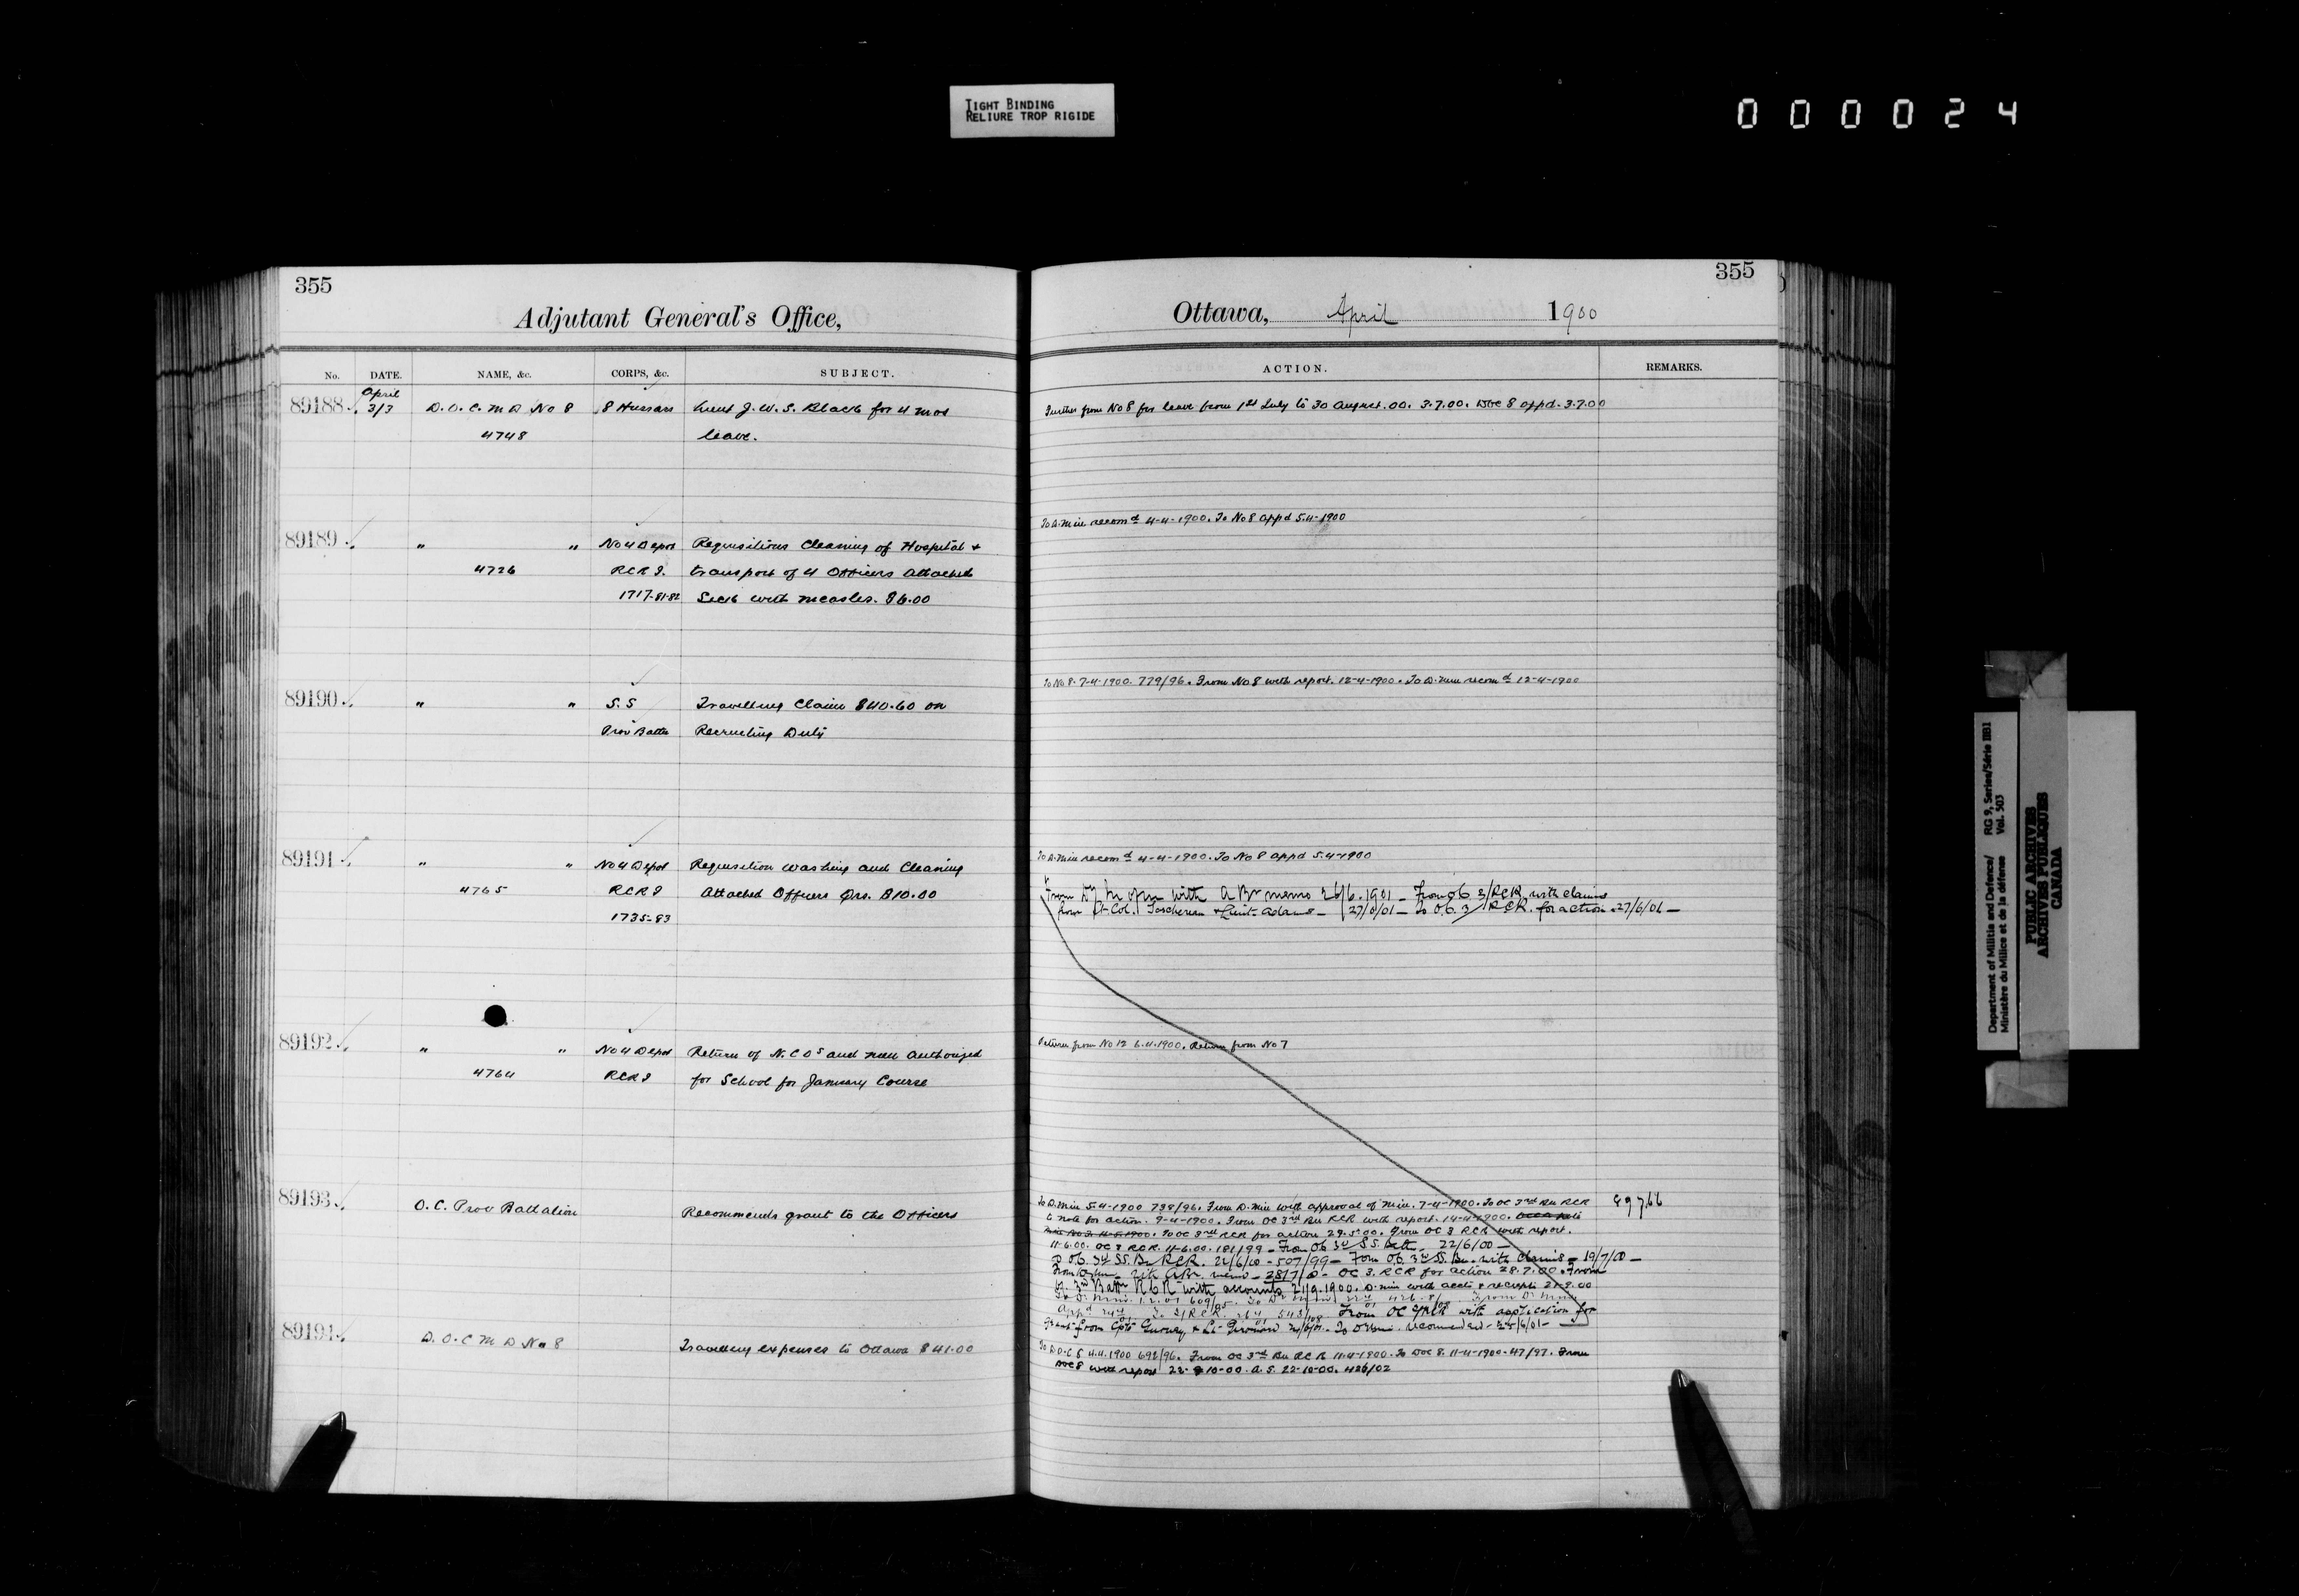 TIGHT BINDING
RELIURE TROP RIGIDE
000024
355
Adjutant General's Office,
No. DATE. NAME, &c. CORPS, &c. SUBJECT.
April
89188 3/3 D.O.C.M.D No 8 8 Hussars Lieut J. W. S. Black for 4 mos
4748 leave.
89189 " " No 4 Depot Requisitions Cleaning of Hospital &
4726 RCRI. transport of 4 Officers attached
1717-81-82 Sick with measles. $6.00
89190 " " S.S Travelling Claim $40.60 on
Prov Battn Recruiting Duty
89191 " " No 4 Depot Requisition washing and Cleaning
4765 RCRI Attached Officers Qrs. $10.00
1735-83
89192 " " No 4 Depot Return of N.C.Os and men authorized
4764 RCRI for School for January Course
89193 O.C. Prov Battalion Recommends grant to the Officers
89194 D.O.C M D No 8 Travelling expenses to Ottawa $41.00
355
Ottawa, April 1900
ACTION. REMARKS.
Further from No 8 for leave from 1st July to 30 August.00. 3.7.00. DOC 8 appd. 3.7.00
To D.Min recomd 4-4-1900. To No 8 appd 5.4-1900
To No 8. 7-4-1900. 779/96. From No 8 with report. 12-4-1900. To D.Min recomd 12-4-1900
To D.Min recomd 4-4-1900. To No 8 appd 5.4-1900
From with memo 26/6.1901 - From O.C 3/RCR with claims
from Lt-Col. Taschereau & Lieut. Adams - 27/6/01 - To O.C. 3/RCR. for action - 27/6/01 -
Return from No 12 6.4.1900. Return from No 7
To D.Min 5-4-1900 738/96. From D.Min with approval of Min. 7-4-1900. To OC 3rd Bn RCR
to note for action. 9-4-1900. From OC 3rd Bn RCR with report. 14-4-1900.
To OC 3rd RCR for action 29.5.00. From OC 3 RCR with report.
11-6.00. OC 3 RCR. 11-6.00. 181/99 - From O.C 3rd S.S. Batt. 22/6/00 -
To O.C. 3rd SS. Bn RCR. 22/6/00 - 507/99 - From O.C. 3rd SS. Bn. with Claims - 19/7/00 -
From with memo - 28/7/00 - OC 3. RCR for action 28.7.00. From
3rd Battn RCR with accounts 21/9.1900. D.Min with accts & receipts 21.9.00
From OC 3/RCR with application for
Grant from Capt & Lt 24/6/01. To D Min. recommended - 25/6/01 -
To D.O.C 8 4.4.1900 692/96. From OC 3rd Bn RCR 11.4-1900. To DOC 8. 11-4-1900. 47/97. From
DOC 8 with report 22-10-00. A.S. 22-10-00. 426/02
Department of Militia and Defence/ RG 9, Series/Série IIB1
Ministère du Milice et de la défense Vol. 503
PUBLIC ARCHIVES
ARCHIVES PUBLIQUES
CANADA